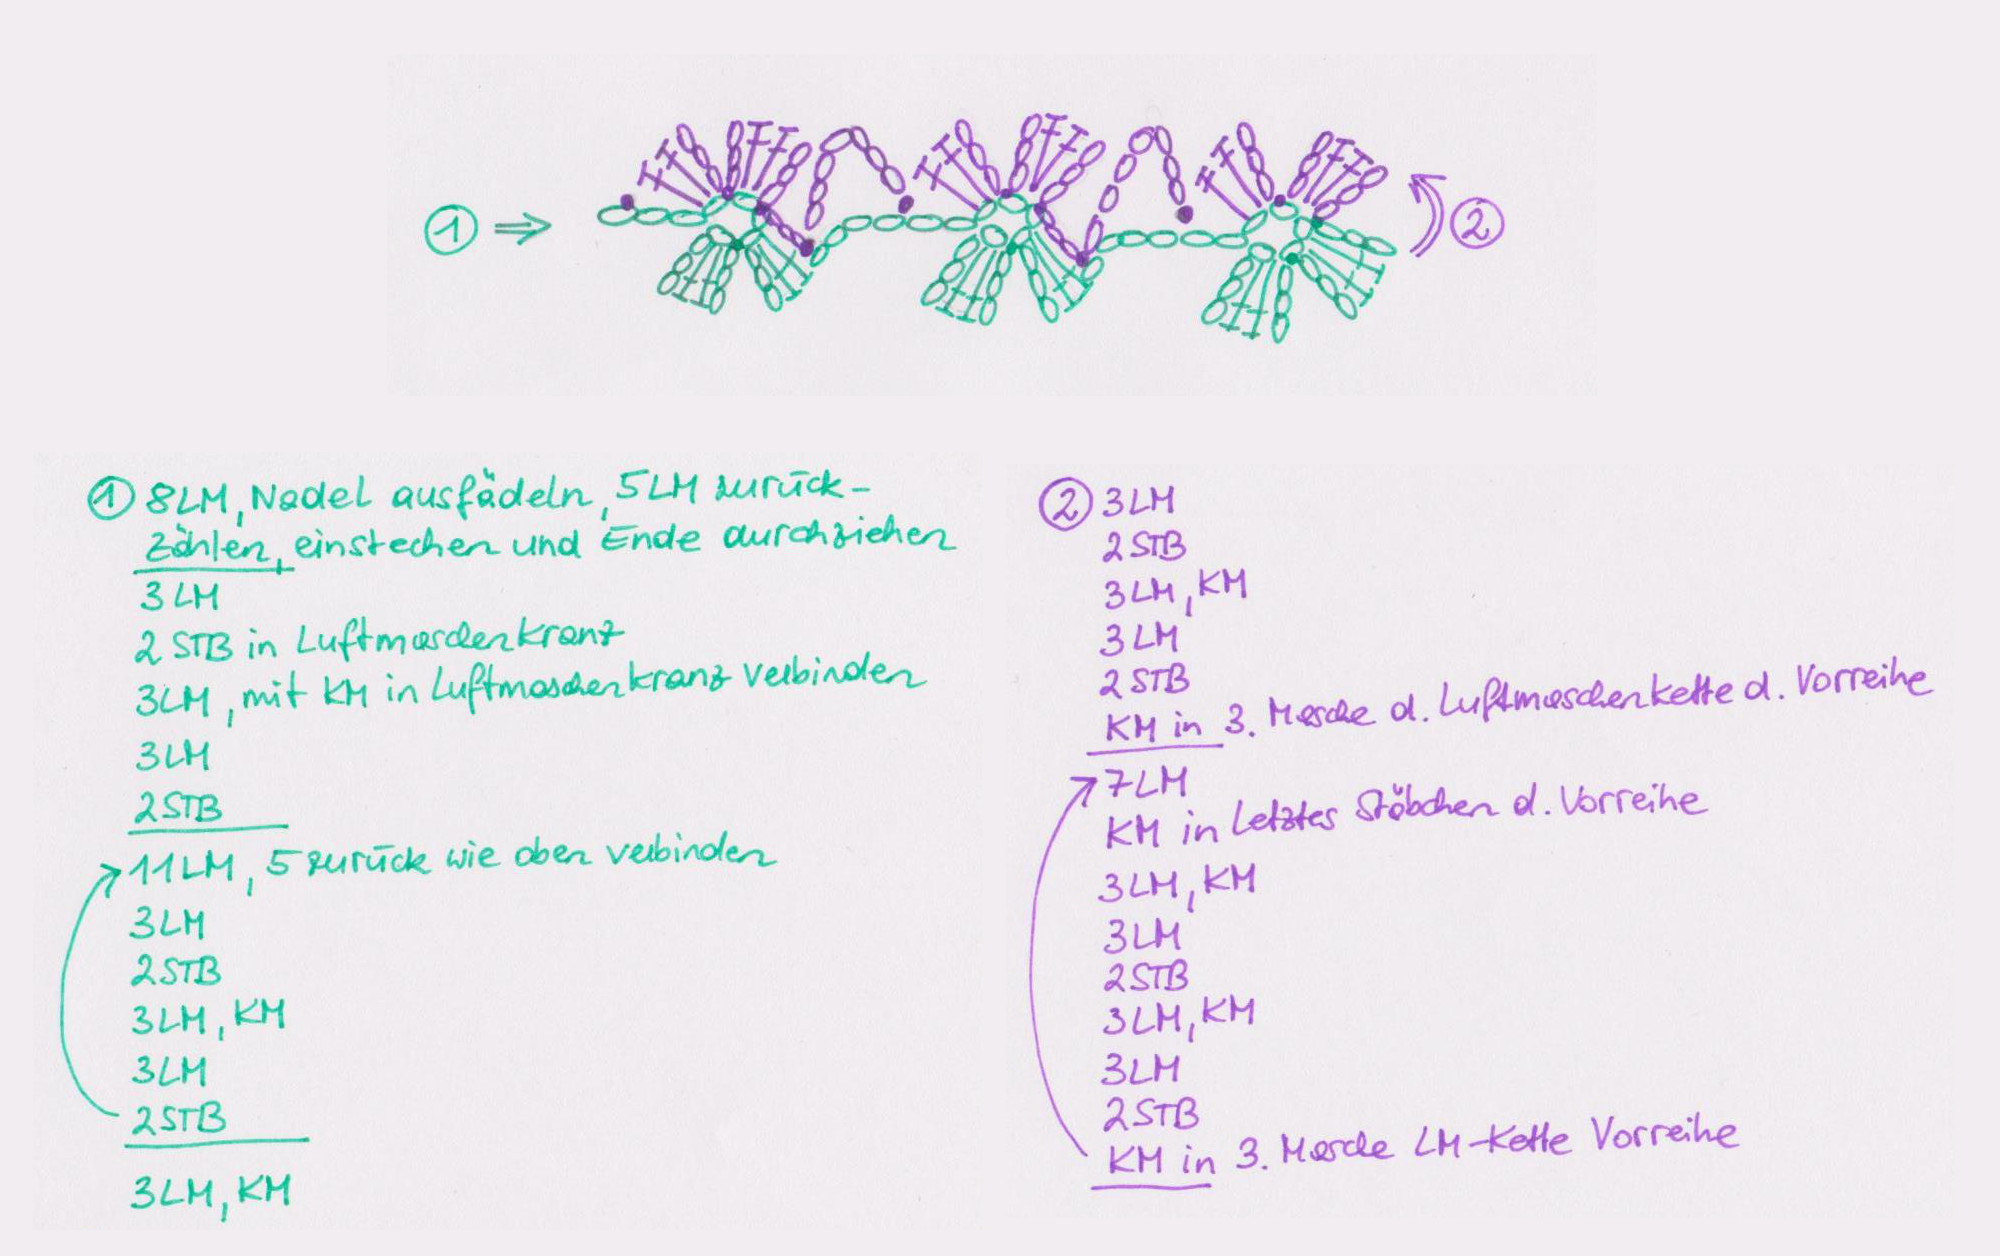 1 ⇒
2
① 8LM, Nadel ausfädeln, 5LM zurück-
zählen, einstechen und Ende durchziehen
3LM
2STB in Luftmaschenkranz
3LM, mit KM in Luftmaschenkranz verbinden
3LM
2STB
11LM, 5 zurück wie oben verbinden
3LM
2STB
3LM, KM
3LM
2STB
3LM, KM
② 3LM
2STB
3LM, KM
3LM
2STB
KM in 3. Masche d. Luftmaschenkette d. Vorreihe
7LM
KM in letztes Stäbchen d. Vorreihe
3LM, KM
3LM
2STB
3LM, KM
3LM
2STB
KM in 3. Masche LM-Kette Vorreihe